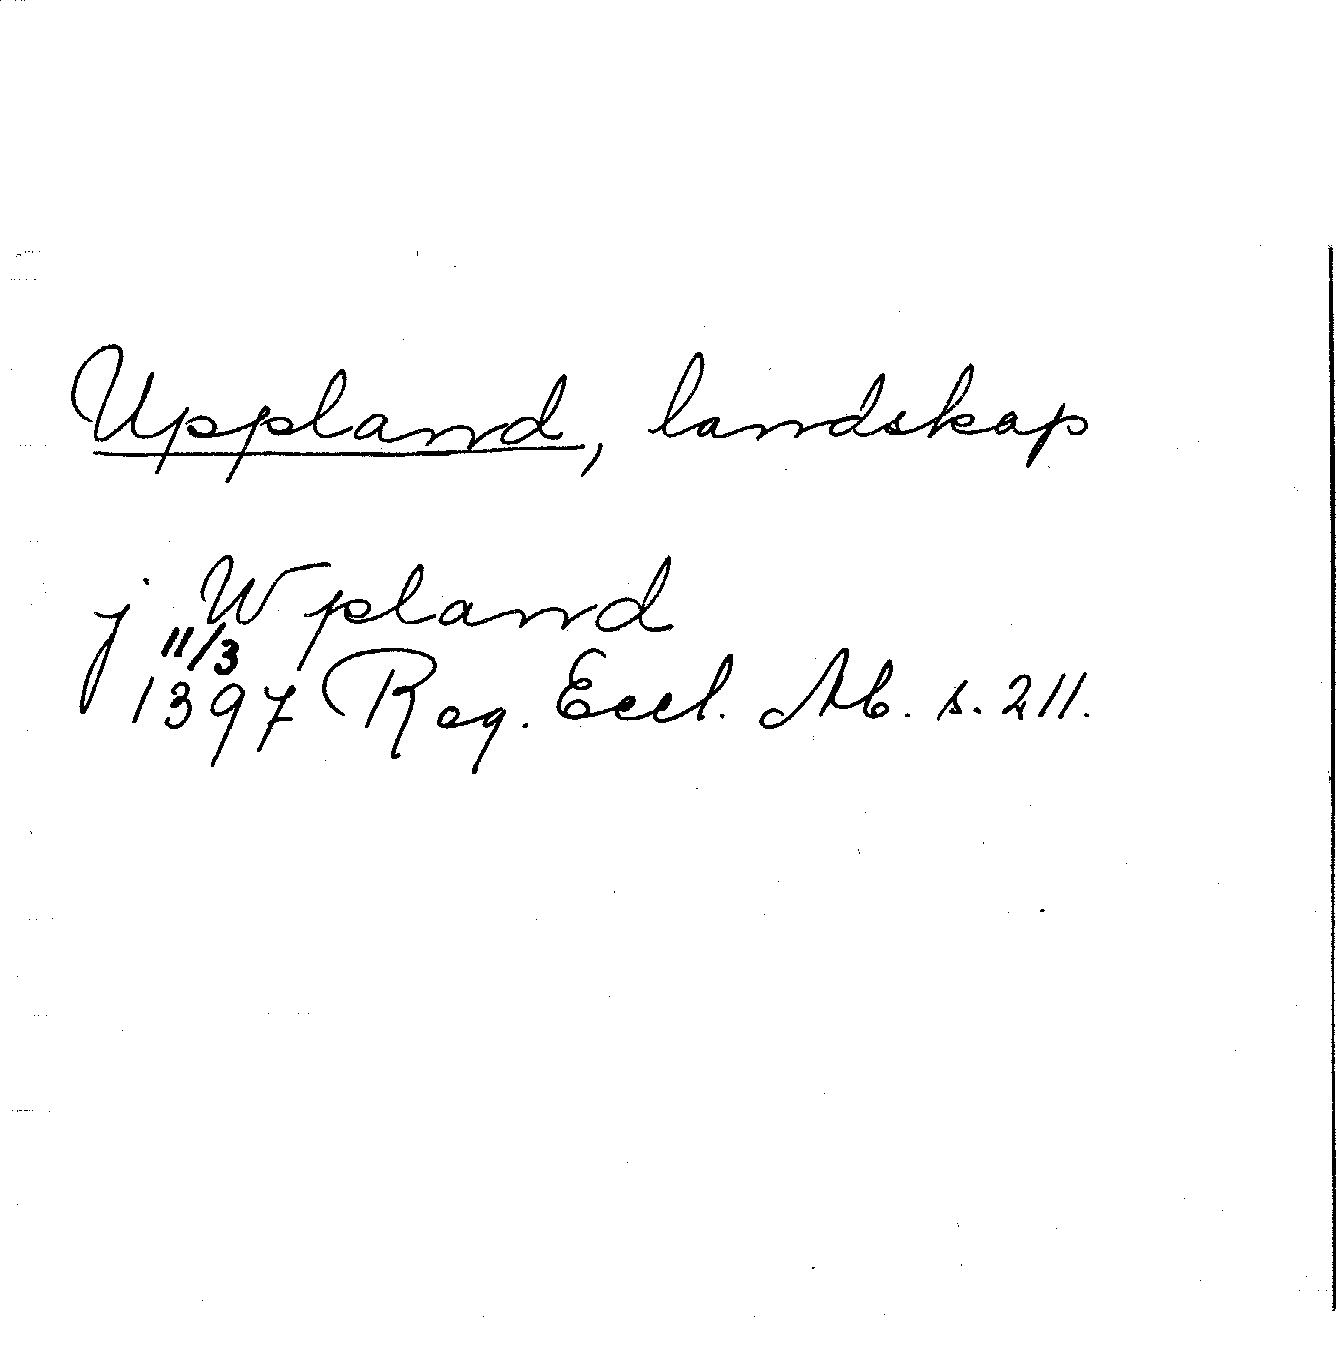 Uppland, landskap
j Wpland
11/3
1397 Reg. Eccl. Ab. s. 211.